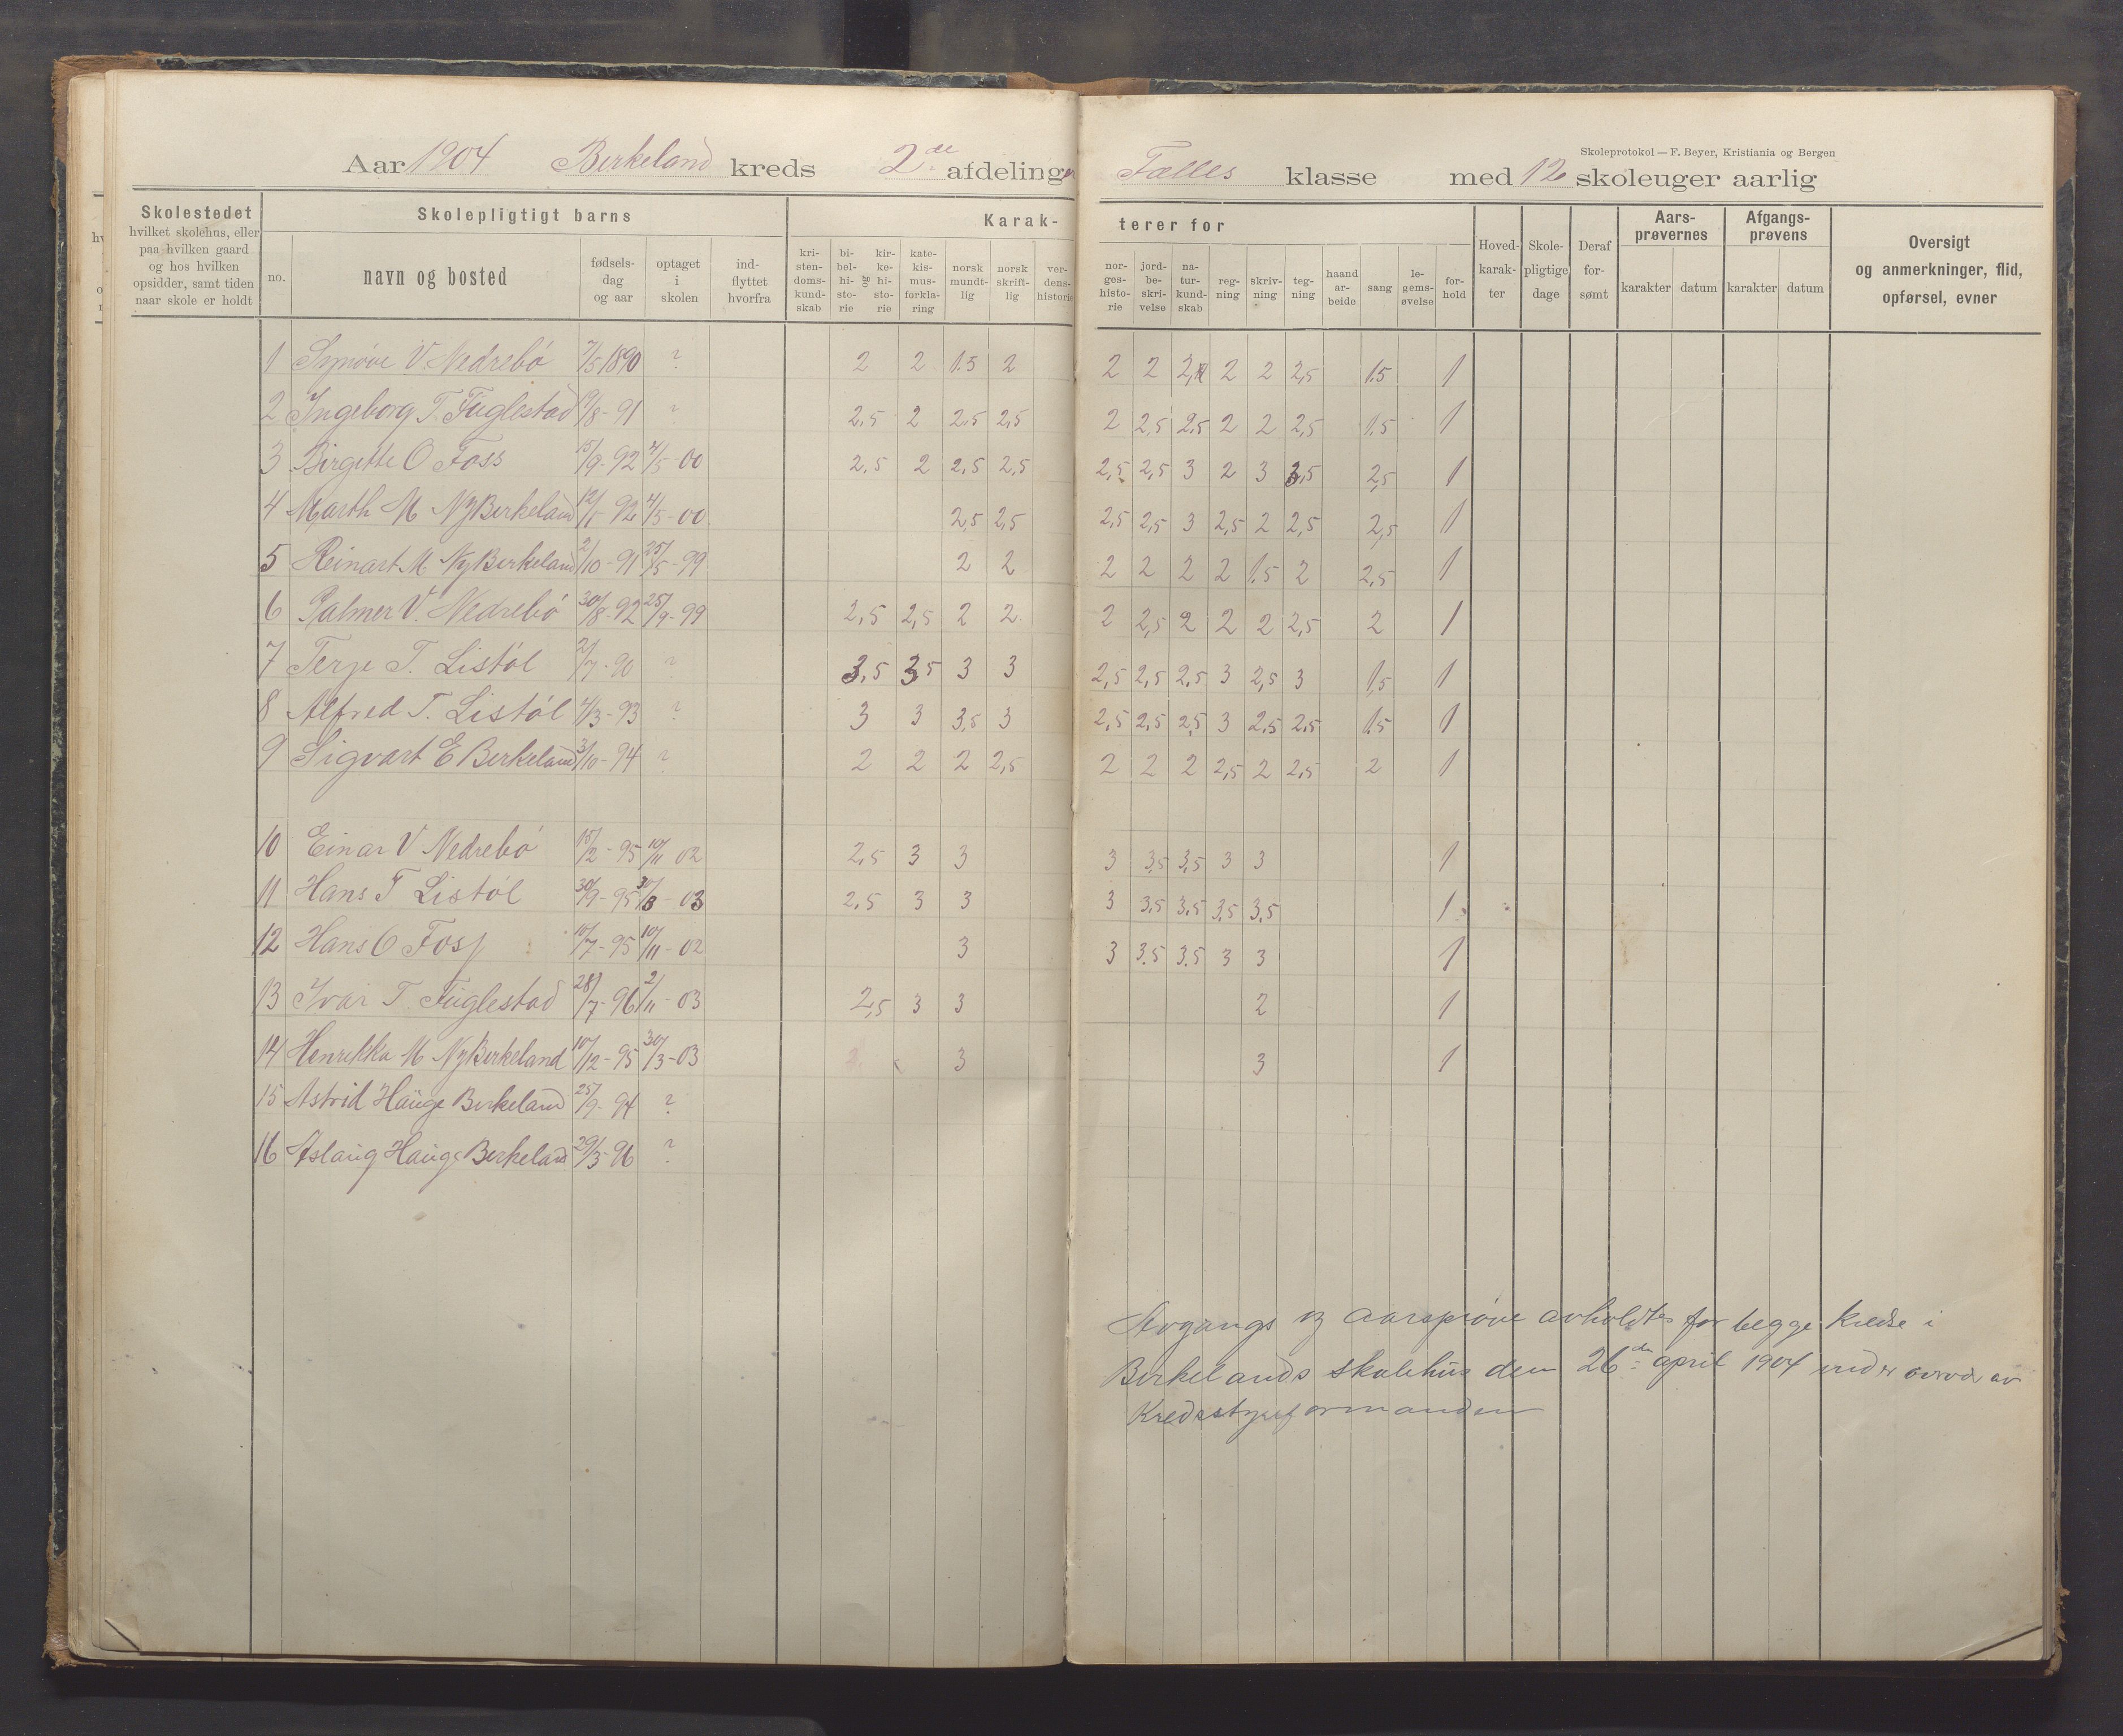 Skoleprotokol — F. Beyer, Kristiania og Bergen
Aar 1904 Birkeland kreds 2de afdeling Fælles klasse med 12 skoleuger aarlig
Skolestedet hvilket skolehus, eller paa hvilken gaard og hos hvilken opsidder, samt tiden naar skole er holdt
Skolepligtigt barns
no. navn og bosted fødsels-dag og aar optaget i skolen ind-flyttet hvorfra
Karak-terer for
kri-sten-doms-kund-skab bi-bel-hi-sto-rie og kir-ke-hi-sto-rie kate-kis-mus-forkla-ring norsk mundt-lig norsk skrift-lig ver-dens-historie nor-ges-histo-rie jord-be-skri-velse na-tur-kund-skab reg-ning skriv-ning teg-ning haand ar-beide sang le-gems-øvelse for-hold
Hoved-karak-ter Skole-pligtige dage Deraf for-sømt
Aars-prøvernes karakter datum
Afgangs-prøvens karakter datum
Oversigt og anmerkninger, flid, opførsel, evner
1 Synöve V. Nedrebö 7/5 1890 ? 2 2 1.5 2 2 2 2 2 2,5 1.5 1
2 Ingeborg T. Fuglestad /8-91 ? 2.5 2 2.5 2,5 2 2,5 2.5 2 2 2,5 1.5 1
3 Birgitte O Foss 15/9-92 4/5-00 2,5 2 2,5 2,5 2,5 2,5 3 2 3 3,5 2,5 1
4 Marth M NyBirkeland 12/1 92 4/5-00 2,5 2,5 2,5 2,5 3 2,5 2 2,5 2,5 1
5 Reinart M. NyBirkeland 2/10-91 25/5-99 2 2 2 2 2 2 1.5 2 2,5 1
6 Palmer V. Nedrebö 30/8-92 25/9-99 2,5 2,5 2 2 2 2,5 2 2 2 2,5 2 1
7 Terje T. Listöl 2/7-90 ? 3.5 3,5 3 3 2,5 2,5 2,5 3 2,5 3 1,5 1
8 Alfred T. Listöl 4/3-93 ? 3 3 3,5 3 2,5 2,5 2,5 3 2,5 2,5 1.5 1
9 Sigvart E Berkeland 3/10-94 ? 2 2 2 2,5 2 2 2 2,5 2 2,5 2 1
10 Einar V Nedrebö 15/2-95 10/11 02 2,5 3 3 3 3,5 3,5 3 3 1
11 Hans T Listöl 30/9-95 30/3-03 2,5 3 3 3 3,5 3,5 3,5 3,5 1
12 Hans O Foss 10/7-95 10/11-02 3 3 3.5 3.5 3 3 1
13 Ivar T. Fuglestad 28/7-96 2/11-03 2,5 3 3 2 1
14 Henrikka M NyBirkeland 10/12-95 30/3-03 3 3 1
15 Astrid Hauge Birkeland 25/9-94 ?
16 Aslaug Hauge Berkeland 29/5-96 ?
Avgangs og aarspröve avholdtes for begge kredse i
Birkelands skolehus den 26de april 1904 under overvær av
Kredsstyreformanden